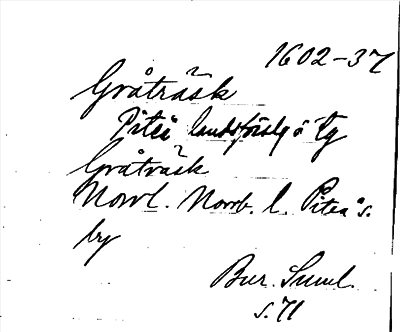 1602-37
Gråträsk
Piteå landsförs tg
Gråträsk
Norrl. Norrb. l. Piteå s.
by
Bur. Suml.
s. 71